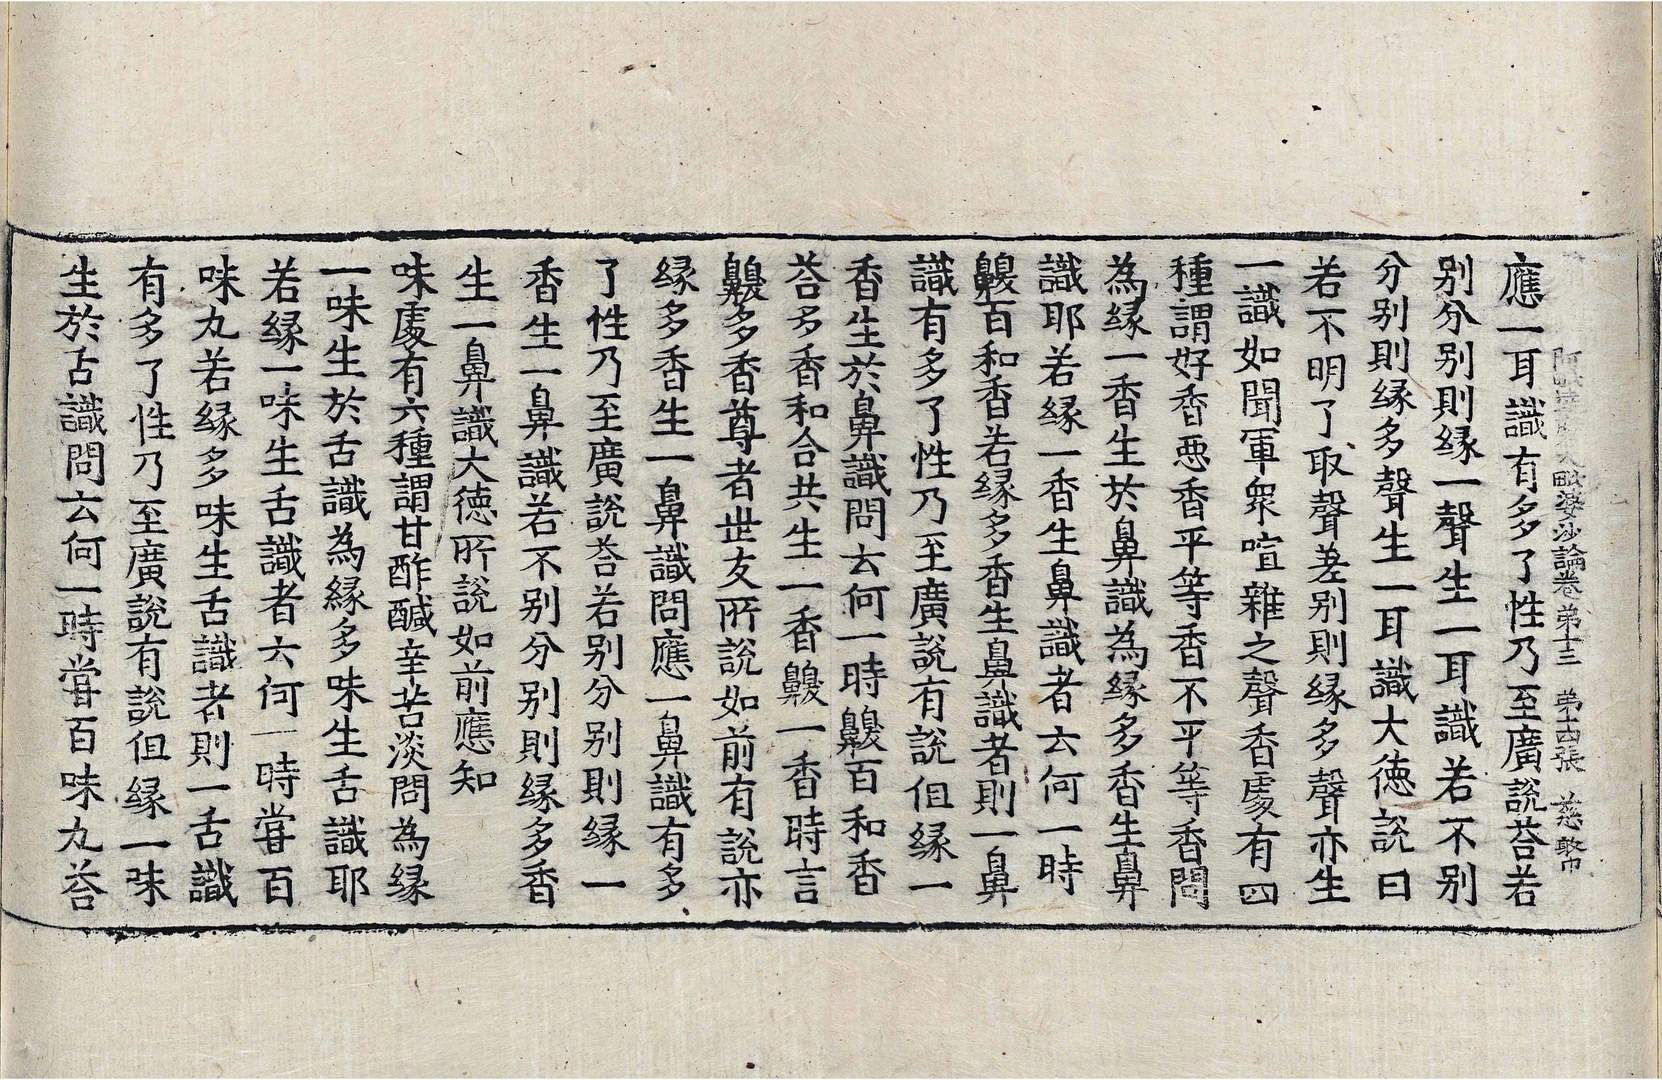 阿毗達磨大毗婆沙論卷弟十三 弟十四張 慈
應一耳識有多了性乃至廣說荅若
别分别則縁一聲生一耳識若不别
分别則縁多聲生一耳識大徳說曰
若不明了取聲差别則縁多聲亦生
一識如聞軍衆喧雜之聲香處有四
種謂好香惡香平等香不平等香問
為縁一香生於鼻識為縁多香生鼻
識耶若縁一香生鼻識者云何一時
齅百和香若縁多香生鼻識者則一鼻
識有多了性乃至廣說有說但縁一
香生於鼻識問云何一時齅百和香
荅多香和合共生一香齅一香時言
齅多香尊者世友所說如前有說亦
縁多香生一鼻識問應一鼻識有多
了性乃至廣說荅若别分别則縁一
香生一鼻識若不别分别則縁多香
生一鼻識大徳所說如前應知
味處有六種謂甘酢醎辛苦淡問為縁
一味生於舌識為縁多味生舌識耶
若縁一味生舌識者云何一時甞百
味丸若縁多味生舌識者則一舌識
有多了性乃至廣說有說但縁一味
生於舌識問云何一時甞百味丸荅